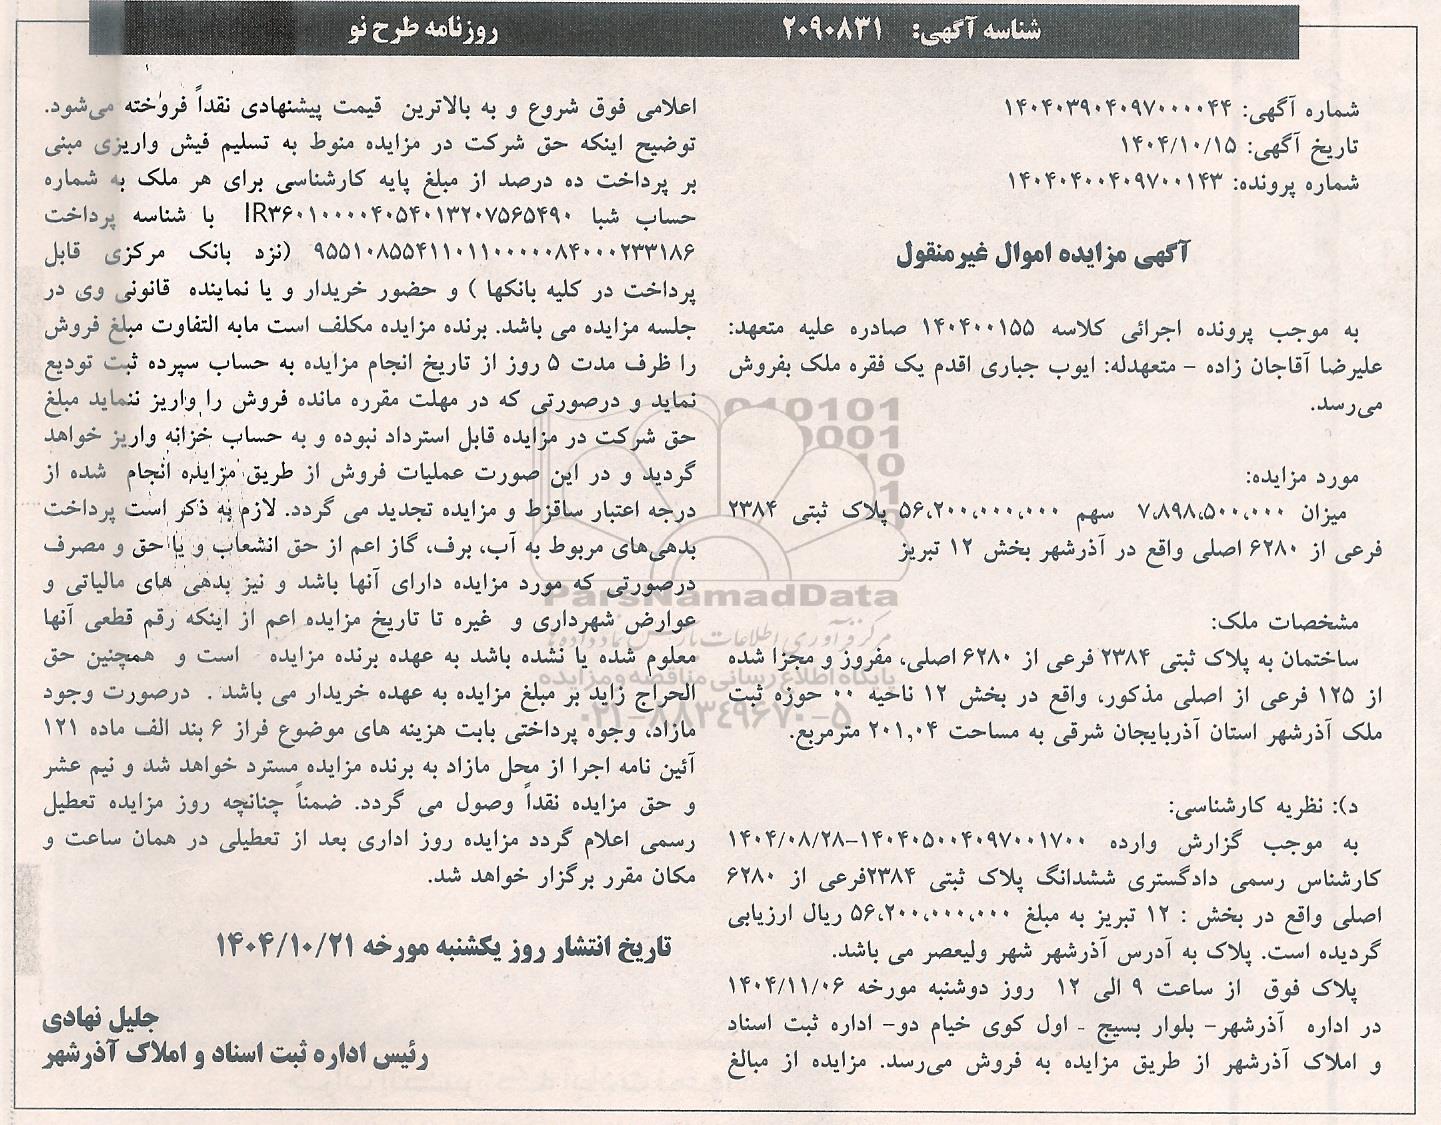 شناسه آگهی: ۲۰۹۰۸۳۱
روزنامه طرح نو
شماره آگهی: ۱۴۰۴۰۳۹۰۴۰۹۷۰۰۰۰۴۴
تاریخ آگهی: ۱۴۰۴/۱۰/۱۵
شماره پرونده: ۱۴۰۴۰۴۰۰۴۰۹۷۰۰۱۴۳
آگهی مزایده اموال غیرمنقول
به موجب پرونده اجرائی کلاسه ۱۴۰۴۰۰۱۵۵ صادره علیه متعهد:
علیرضا آقاجان زاده – متعهدله: ایوب جباری اقدم یک فقره ملک بفروش
می‌رسد.
مورد مزایده:
میزان ۷،۸۹۸،۵۰۰،۰۰۰ سهم ۵۶،۲۰۰،۰۰۰،۰۰۰ پلاک ثبتی ۲۳۸۴
فرعی از ۶۲۸۰ اصلی واقع در آذرشهر بخش ۱۲ تبریز
مشخصات ملک:
ساختمان به پلاک ثبتی ۲۳۸۴ فرعی از ۶۲۸۰ اصلی، مفروز و مجزا شده
از ۱۲۵ فرعی از اصلی مذکور، واقع در بخش ۱۲ ناحیه ۰۰ حوزه ثبت
ملک آذرشهر استان آذربایجان شرقی به مساحت ۲۰۱,۰۴ مترمربع.
د): نظریه کارشناسی:
به موجب گزارش وارده ۱۴۰۴۰۵۰۰۴۰۹۷۰۰۱۷۰۰–۱۴۰۴/۰۸/۲۸
کارشناس رسمی دادگستری ششدانگ پلاک ثبتی ۲۳۸۴فرعی از ۶۲۸۰
اصلی واقع در بخش : ۱۲ تبریز به مبلغ ۵۶،۲۰۰،۰۰۰،۰۰۰ ریال ارزیابی
گردیده است. پلاک به آدرس آذرشهر شهر ولیعصر می باشد.
پلاک فوق از ساعت ۹ الی ۱۲ روز دوشنبه مورخه ۱۴۰۴/۱۱/۰۶
در اداره آذرشهر– بلوار بسیج - اول کوی خیام دو– اداره ثبت اسناد
و املاک آذرشهر از طریق مزایده به فروش می‌رسد. مزایده از مبالغ
اعلامی فوق شروع و به بالاترین قیمت پیشنهادی نقداً فروخته می‌شود.
توضیح اینکه حق شرکت در مزایده منوط به تسلیم فیش واریزی مبنی
بر پرداخت ده درصد از مبلغ پایه کارشناسی برای هر ملک به شماره
حساب شبا IR۳۶۰۱۰۰۰۰۴۰۵۴۰۱۳۲۰۷۵۶۵۴۹۰ با شناسه پرداخت
۹۵۵۱۰۸۵۵۴۱۱۰۱۱۰۰۰۰۰۸۴۰۰۰۲۳۳۱۸۶ (نزد بانک مرکزی قابل
پرداخت در کلیه بانکها ) و حضور خریدار و یا نماینده قانونی وی در
جلسه مزایده می باشد. برنده مزایده مکلف است مابه التفاوت مبلغ فروش
را ظرف مدت ۵ روز از تاریخ انجام مزایده به حساب سپرده ثبت تودیع
نماید و درصورتی که در مهلت مقرره مانده فروش را واریز ننماید مبلغ
حق شرکت در مزایده قابل استرداد نبوده و به حساب خزانه واریز خواهد
گردید و در این صورت عملیات فروش از طریق مزایده انجام شده از
درجه اعتبار ساقزط و مزایده تجدید می گردد. لازم به ذکر است پرداخت
بدهی‌های مربوط به آب، برف، گاز اعم از حق انشعاب و یا حق و مصرف
درصورتی که مورد مزایده دارای آنها باشد و نیز بدهی های مالیاتی و
عوارض شهرداری و غیره تا تاریخ مزایده اعم از اینکه رقم قطعی آنها
معلوم شده یا نشده باشد به عهده برنده مزایده است و همچنین حق
الحراج زاید بر مبلغ مزایده به عهده خریدار می باشد . درصورت وجود
مازاد، وجوه پرداختی بابت هزینه های موضوع فراز ۶ بند الف ماده ۱۲۱
آئین نامه اجرا از محل مازاد به برنده مزایده مسترد خواهد شد و نیم عشر
و حق مزایده نقداً وصول می گردد. ضمناً چنانچه روز مزایده تعطیل
رسمی اعلام گردد مزایده روز اداری بعد از تعطیلی در همان ساعت و
مکان مقرر برگزار خواهد شد.
تاریخ انتشار روز یکشنبه مورخه ۱۴۰۴/۱۰/۲۱
جلیل نهادی
رئیس اداره ثبت اسناد و املاک آذرشهر
ParsNamadData
مرکز فرآوری اطلاعات پارس نماد داده ها
پایگاه اطلاع رسانی مناقصه و مزایده
۰۲۱–۸۸۳۴۹۶۷۰–۵